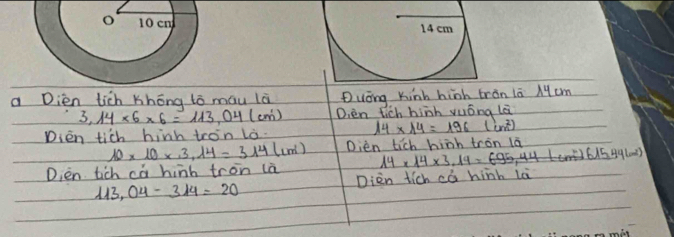 O 10 cm
14 cm
a Diện tích không tô màu là
3,14 x 6 x 6 = 113,04 (cm²)
Diện tích hình tròn là
10 x 10 x 3,14 = 314 (cm²)
Diện tích cả hình tròn là
113,04 - 314 = 20
Đường kính hình tròn là 14 cm
Diện tích hình vuông là
14 x 14 = 196 (cm²)
Diện tích hình tròn là
14 x 14 x 3,14 = 695,44 (cm²) 615,44 (cm²)
Diện tích cả hình là